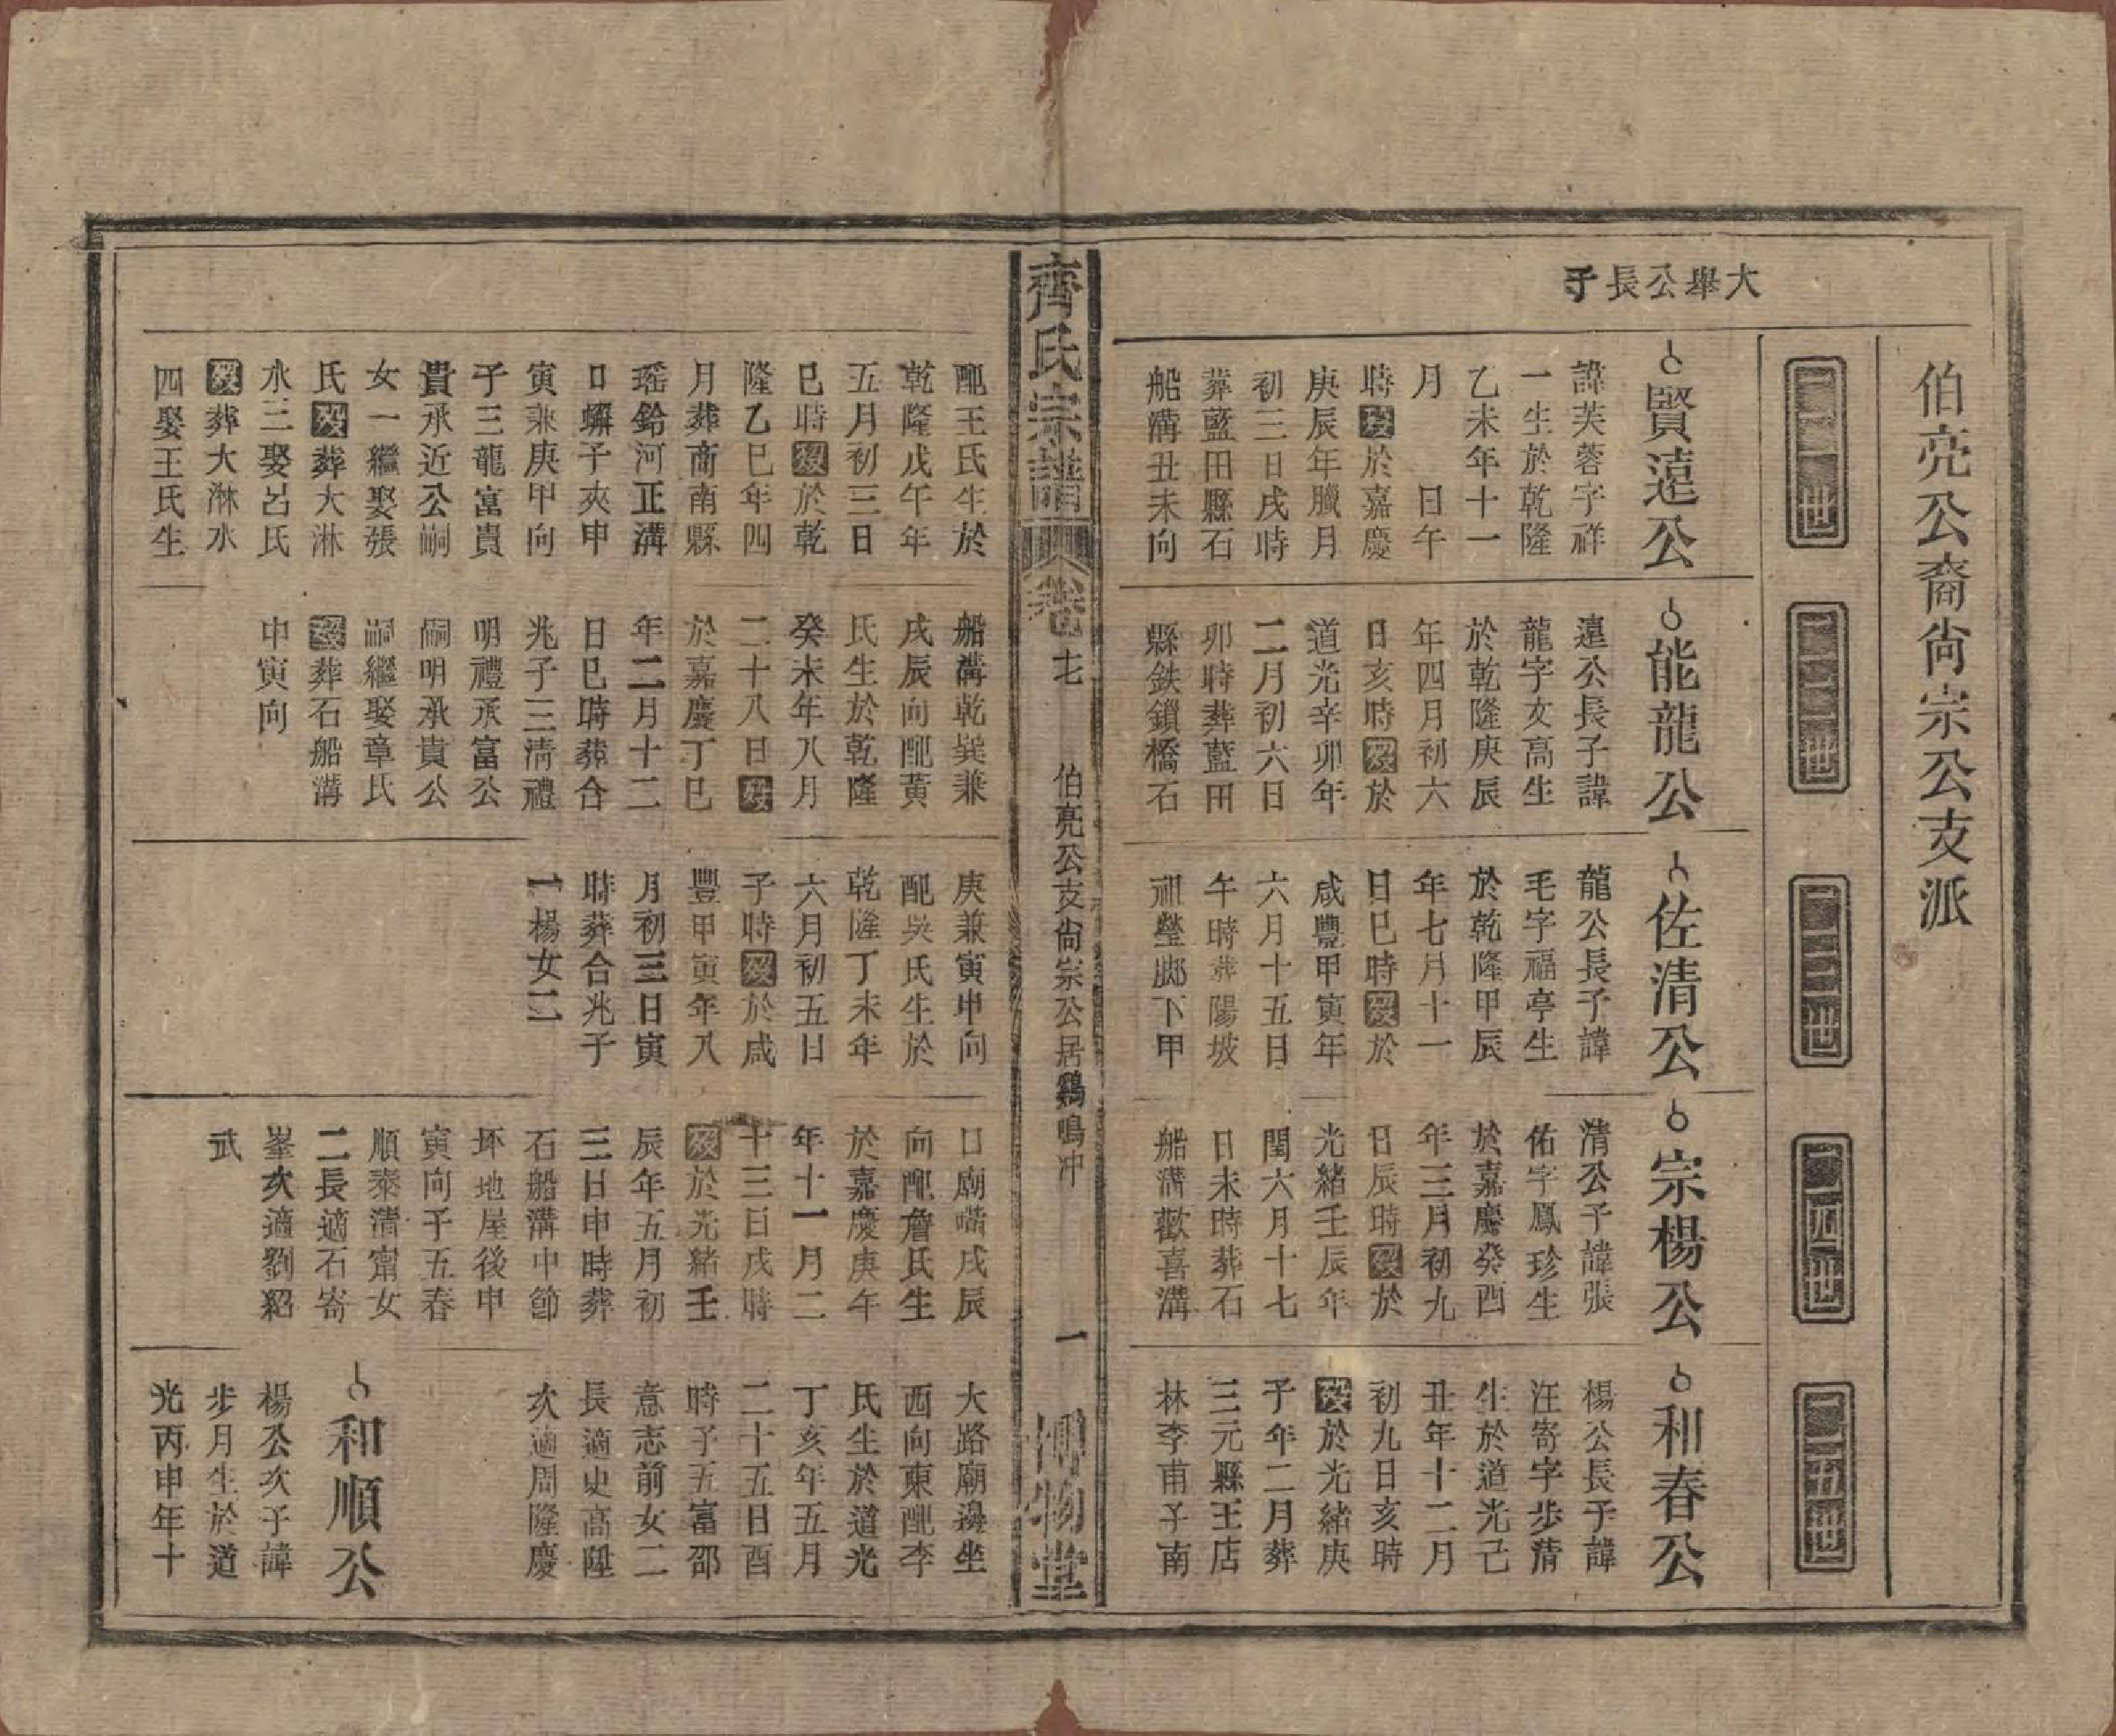 伯亮公裔尙宗公支派
二一世
二二世
二三世
二四世
二五世
大舉公長子
賢遠公
諱芙蓉字祥
一生於乾隆
乙未年十一
月　日午
時歿於嘉慶
庚辰年臘月
初三日戌時
葬藍田縣石
船溝丑未向
配王氏生於
乾隆戊午年
五月初三日
巳時歿於乾
隆乙巳年四
月葬商南縣
瑶鈴河正溝
口蠏子夾申
寅兼庚甲向
子三龍富貴
貴承近公嗣
女一繼娶張
氏歿葬大淋
水三娶呂氏
歿葬大淋水
四娶王氏生
能龍公
遠公長子諱
龍字文高生
於乾隆庚辰
年四月初六
日亥時歿於
道光辛卯年
二月初六日
卯時葬藍田
縣鉄鎖橋石
船溝乾巽兼
戌辰向配黃
氏生於乾隆
癸未年八月
二十八日歿
於嘉慶丁巳
年二月十二
日巳時葬合
兆子三淸禮
明禮承富公
嗣明承貴公
嗣繼娶章氏
歿葬石船溝
申寅向
佐清公
龍公長子諱
毛字福亭生
於乾隆甲辰
年七月十一
日巳時歿於
咸豐甲寅年
六月十五日
午時葬陽坡
祖塋脚下甲
庚兼寅申向
配吳氏生於
乾隆丁未年
六月初五日
子時歿於咸
豐甲寅年八
月初三日寅
時葬合兆子
一楊女二
宗楊公
清公子諱張
佑字鳳珍生
於嘉慶癸酉
年三月初九
日辰時歿於
光緒壬辰年
閏六月十七
日未時葬石
船溝歡喜溝
口廟嘴戌辰
向配詹氏生
於嘉慶庚午
年十一月二
十三日戌時
歿於光緒壬
辰年五月初
三日申時葬
石船溝中節
坏地屋後申
寅向子五春
順泰淸甯女
二長適石寄
峯次適劉紹
武
和春公
楊公長子諱
汪寄字步清
生於道光己
丑年十二月
初九日亥時
歿於光緒庚
子年二月葬
三元縣王店
林李甫子南
大路廟邊坐
西向東配李
氏生於道光
丁亥年五月
二十五日酉
時子五富邵
意志前女二
長適史高陞
次適周隆慶
和順公
楊公次子諱
步月生於道
光丙申年十
齊氏宗譜
卷七
伯亮公支尙宗公居鷄鳴冲
一
博物堂